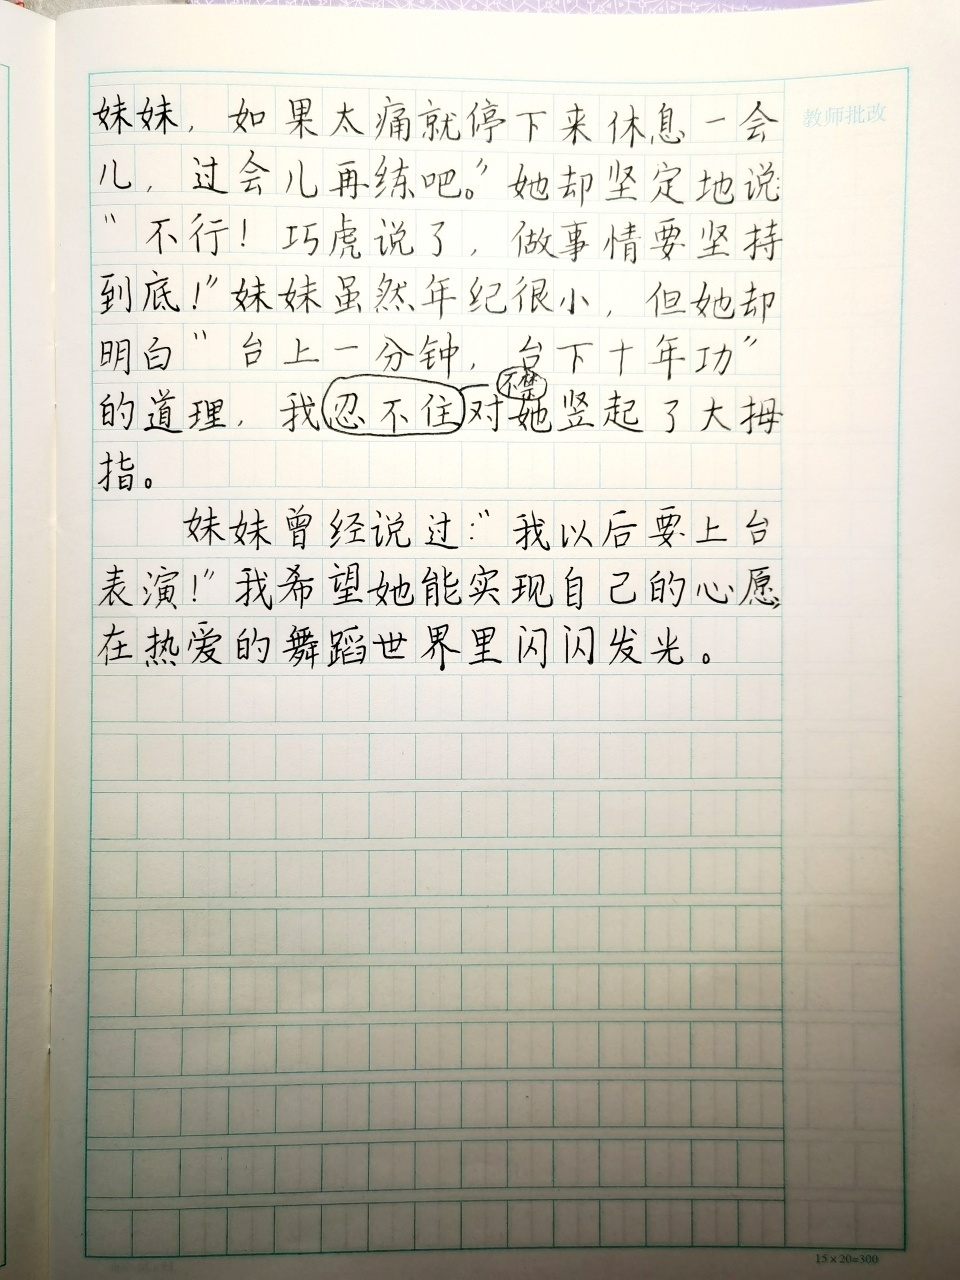 教师批改
妹妹，如果太痛就停下来休息一会
儿，过会儿再练吧。”她却坚定地说：
“不行！巧虎说了，做事情要坚持
到底！”妹妹虽然年纪很小，但她却
明白“台上一分钟，台下十年功”
不禁
的道理，我忍不住对她竖起了大拇
指。
妹妹曾经说过：“我以后要上台
表演！”我希望她能实现自己的心愿，
在热爱的舞蹈世界里闪闪发光。
15×20=300